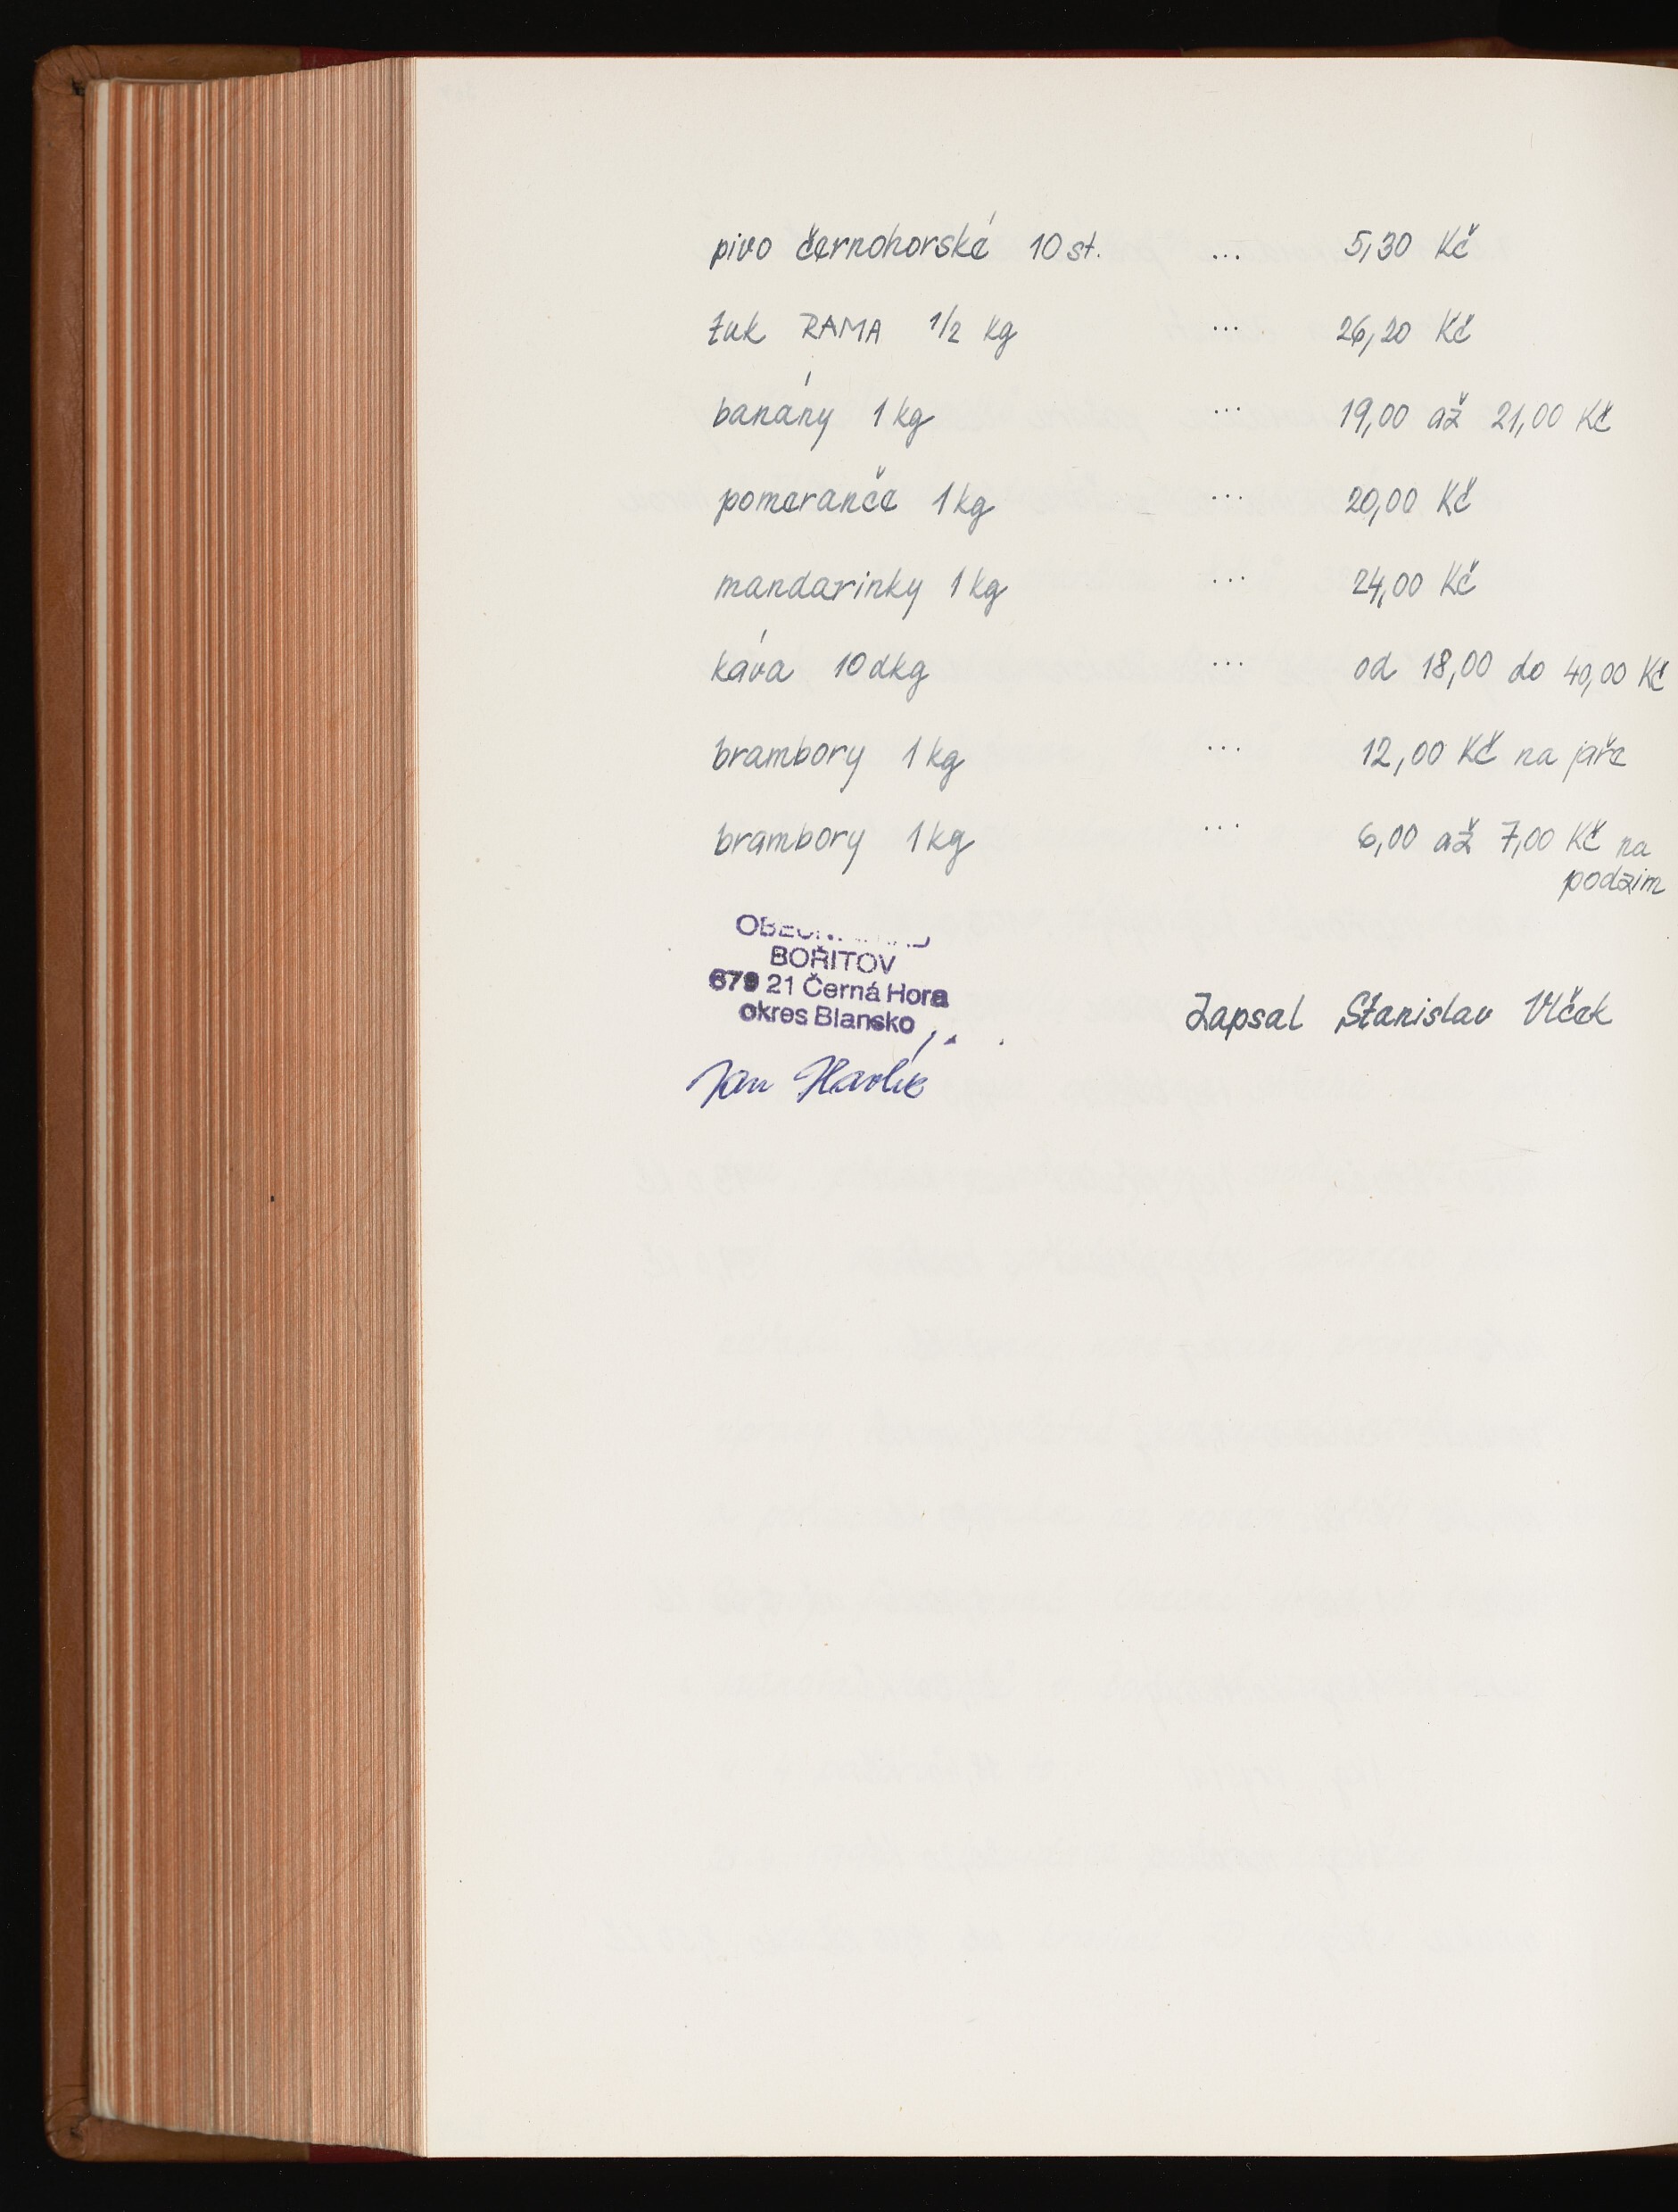 pivo černohorské 10 st. ... 5,30 Kč
tuk RAMA 1/2 kg ... 26,20 Kč
banány 1 kg ... 19,00 až 21,00 Kč
pomeranče 1 kg ... 20,00 Kč
mandarinky 1 kg ... 24,00 Kč
káva 10 dkg ... od 18,00 do 40,00 Kč
brambory 1 kg ... 12,00 Kč na jaře
brambory 1 kg ... 6,00 až 7,00 Kč na
podzim
BOŘITOV
679 21 Černá Hora
okres Blansko
Zapsal Stanislav Vlček
Jan Havlík